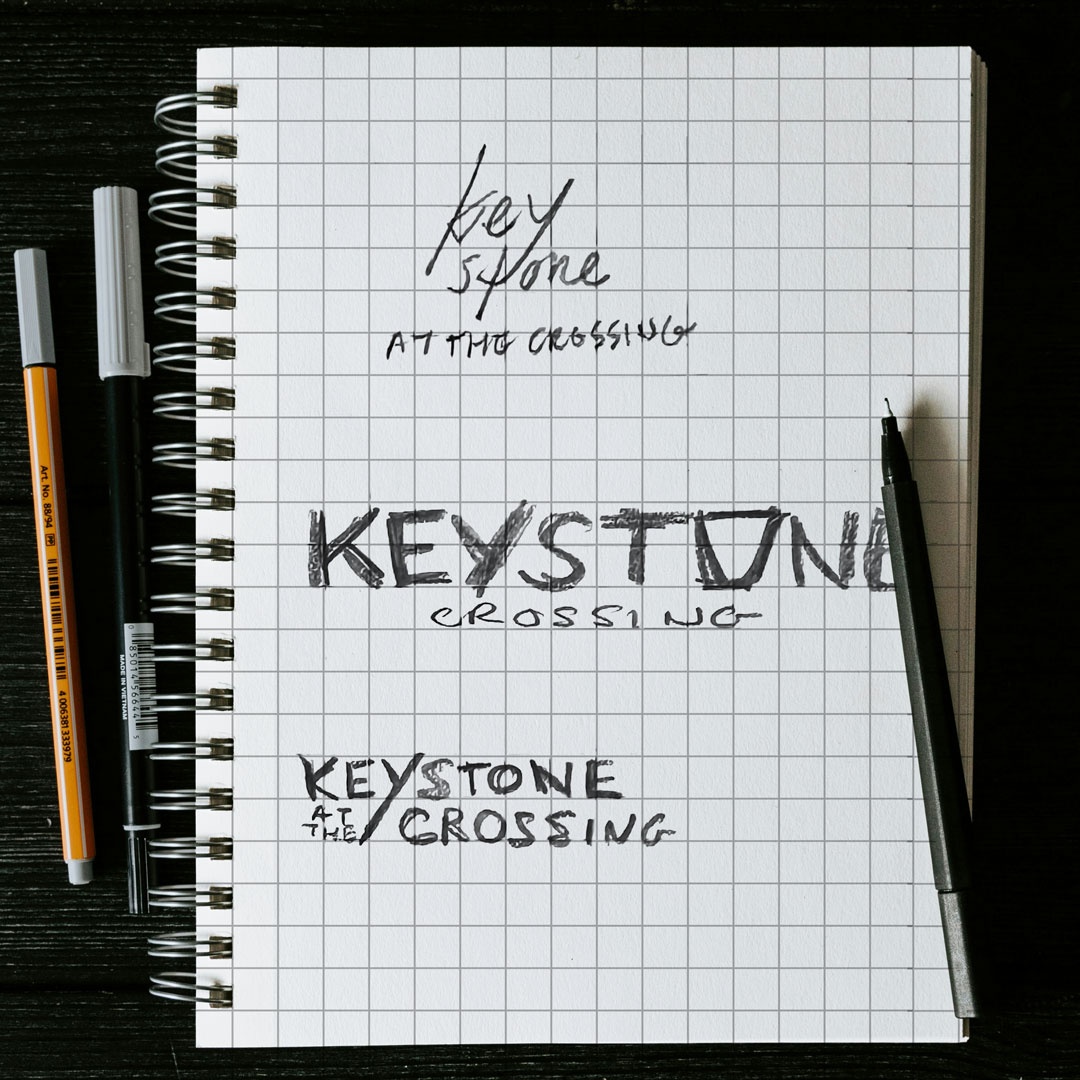 key
stone
AT THE CROSSING
KEYSTONE
CROSSING
KEYSTONE
AT THE CROSSING
Art. No. 88/94
4 006381 333979
MADE IN VIETNAM
0 85014 56644 5